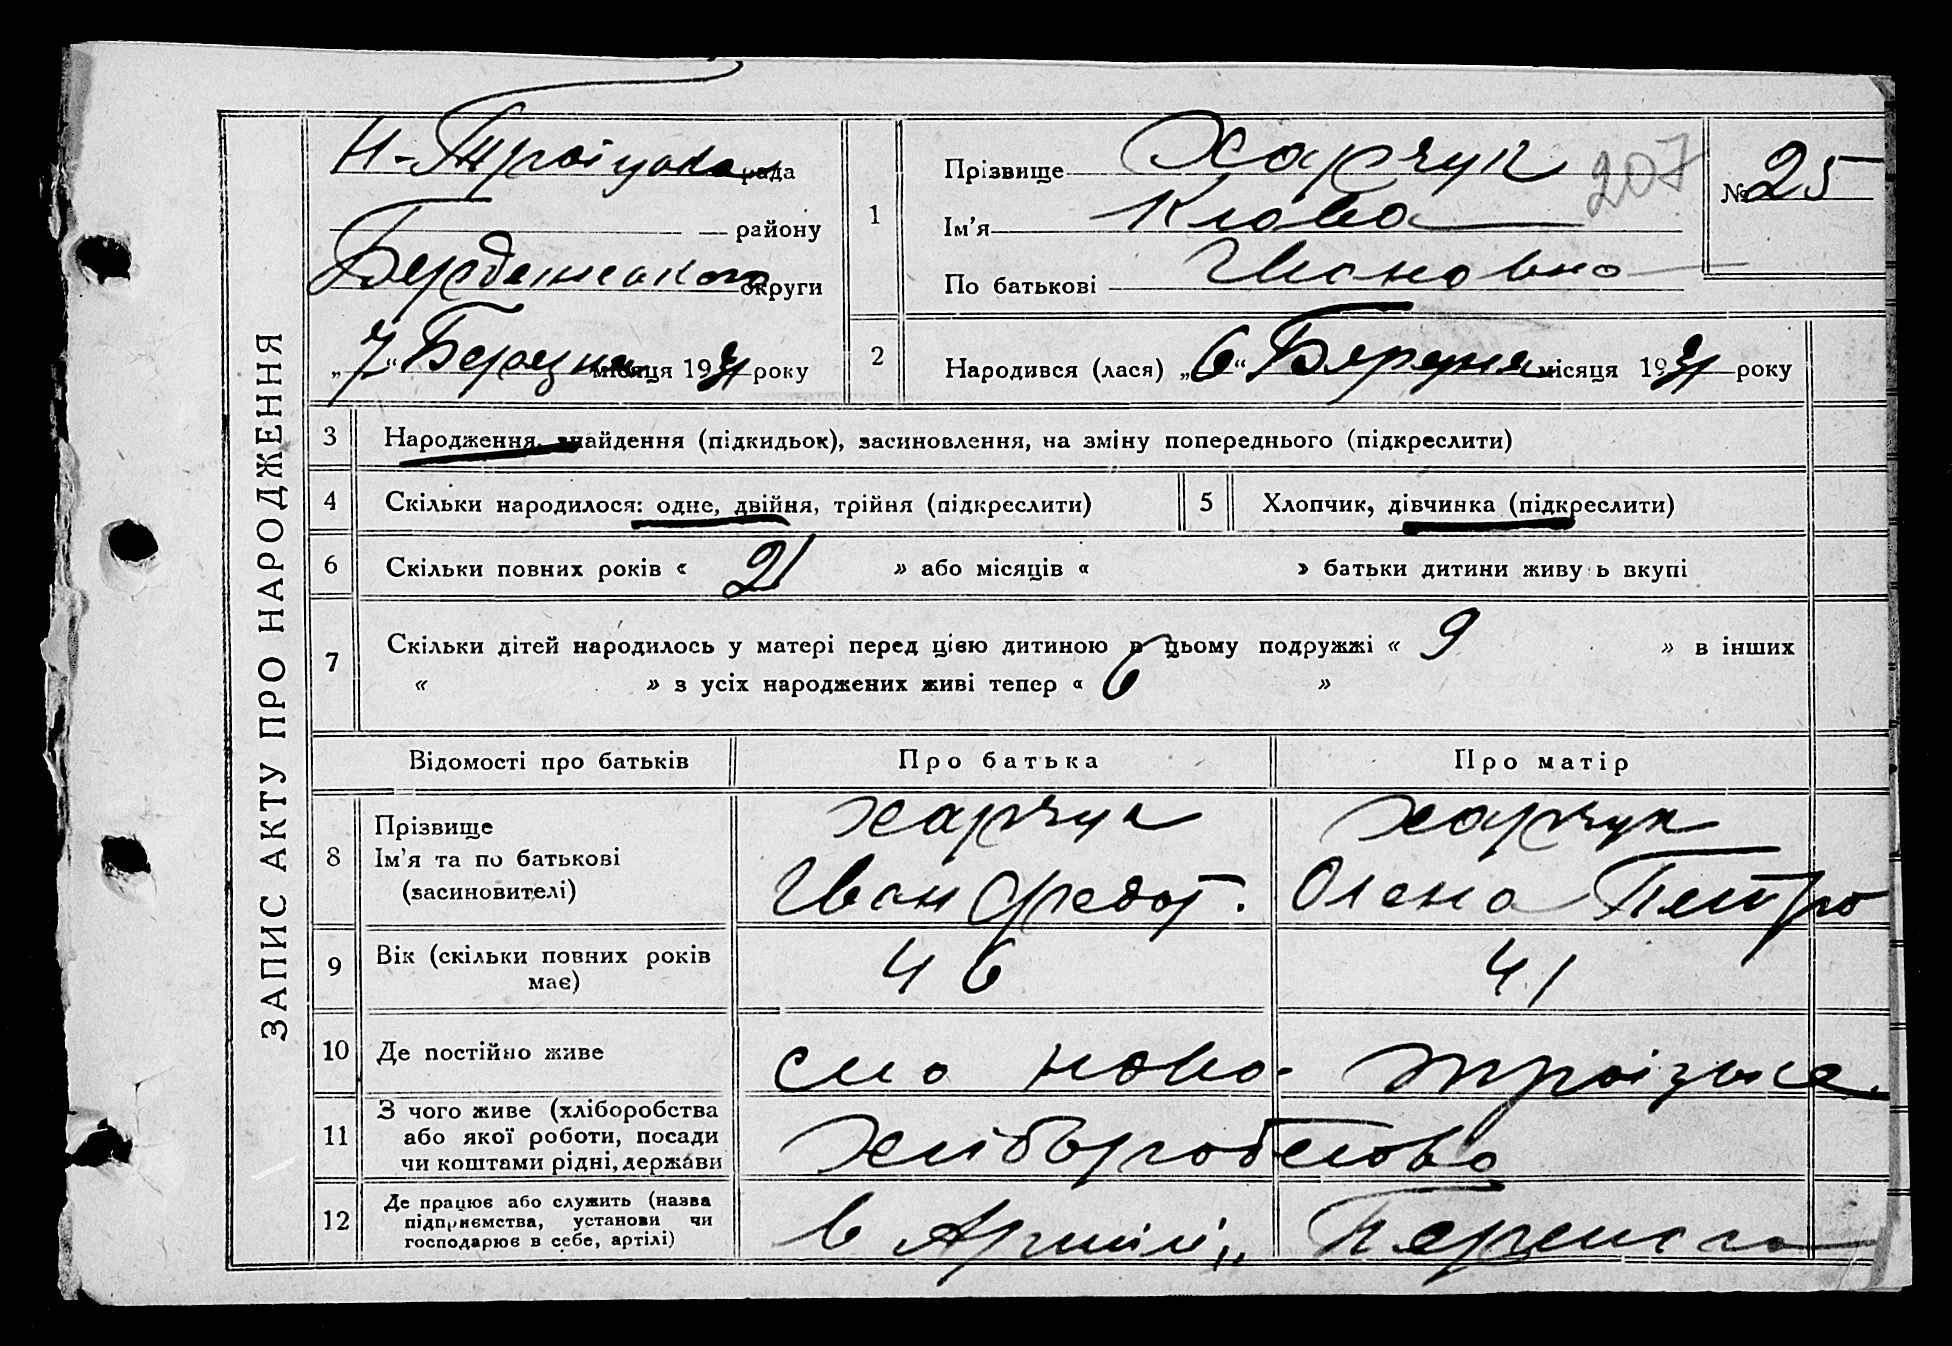 ЗАПИС АКТУ ПРО НАРОДЖЕННЯ
Н-Троіцька рада
району
Бердянського округи
„7“ Березня місяця 1931 року
1
Прізвище Харчук
207
Ім'я Клава
По батькові Ивановно
№ 25
2
Народився (лася) „6“ Березня місяця 1931 року
3 Народження, знайдення (підкидьок), засиновлення, на зміну попереднього (підкреслити)
4 Скільки народилося: одне, двійня, трійня (підкреслити)
5 Хлопчик, дівчинка (підкреслити)
6 Скільки повних років « 21 » або місяців « » батьки дитини живуть вкупі
7 Скільки дітей народилось у матері перед цією дитиною в цьому подружжі « 9 » в інших
« » з усіх народжених живі тепер « 6 »
Відомості про батьків Про батька Про матір
8 Прізвище
Ім'я та по батькові
(засиновителі)
Харчук
Іван Федот.
Харчук
Олена Петро
9 Вік (скільки повних років має)
46
41
10 Де постійно живе
село Ново-Троіцьке.
11 З чого живе (хліборобства
або якої роботи, посади
чи коштами рідні, держави
Хліборобство
12 Де працює або служить (назва
підприємства, установи чи
господарює в себе, артілі)
в Артілі „